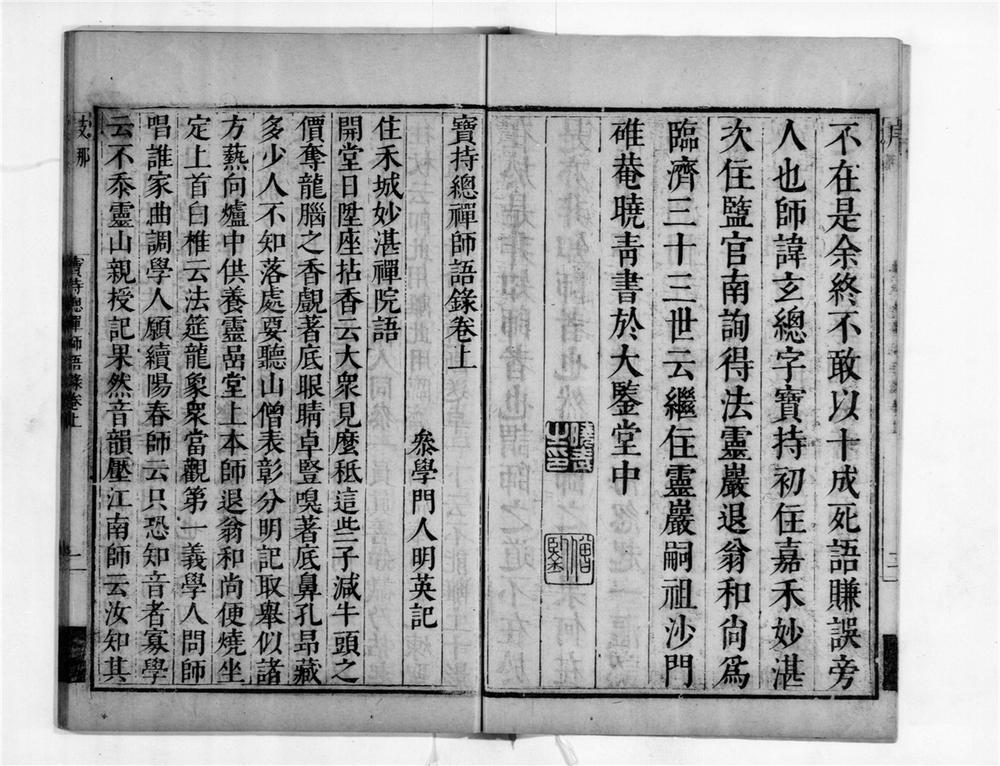 不在是余終不敢以十成死語賺誤旁
人也師諱玄總字寶持初住嘉禾妙湛
次住鹽官南詢得法靈巖退翁和尚爲
臨濟三十三世云繼住靈巖嗣祖沙門
碓菴曉青書於大鑒堂中
曉青之印
僧鑒
寶持總禪師語錄卷上
叅學門人明英記
住禾城妙湛禪院語
開堂日陞座拈香云大衆見麼秪這些子減牛頭之
價奪龍腦之香覰著底眼睛卓豎嗅著底鼻孔昂藏
多少人不知落處要聽山僧表彰分明記取舉似諸
方爇向爐中供養靈嵒堂上本師退翁和尚便燒坐
定上首白椎云法筵龍象衆當觀第一義學人問師
唱誰家曲調學人願續陽春師云只恐知音者寡學
云不忝靈山親授記果然音韻壓江南師云汝知其
寶持總禪師語錄卷上
一